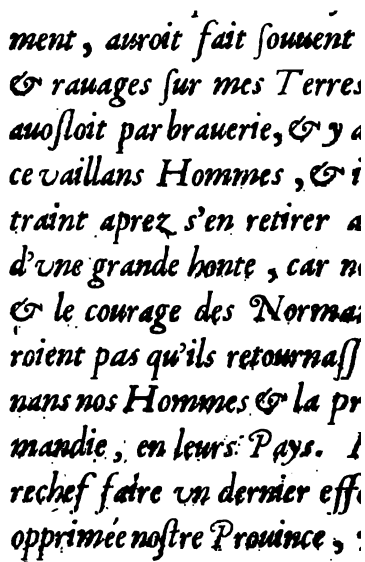 ment, auroit fait ſouuent
& rauages ſur mes Terres
auoſloit par brauerie, & y a
ce vaillans Hommes, & i
traint aprez s'en retirer a
d'vne grande honte, car n
& le courage des Norma
roient pas qu'ils retournaſſ
nans nos Hommes & la pr
mandie, en leurs Pays.
rechef faire vn dernier eff
opprimée noſtre Prouince,